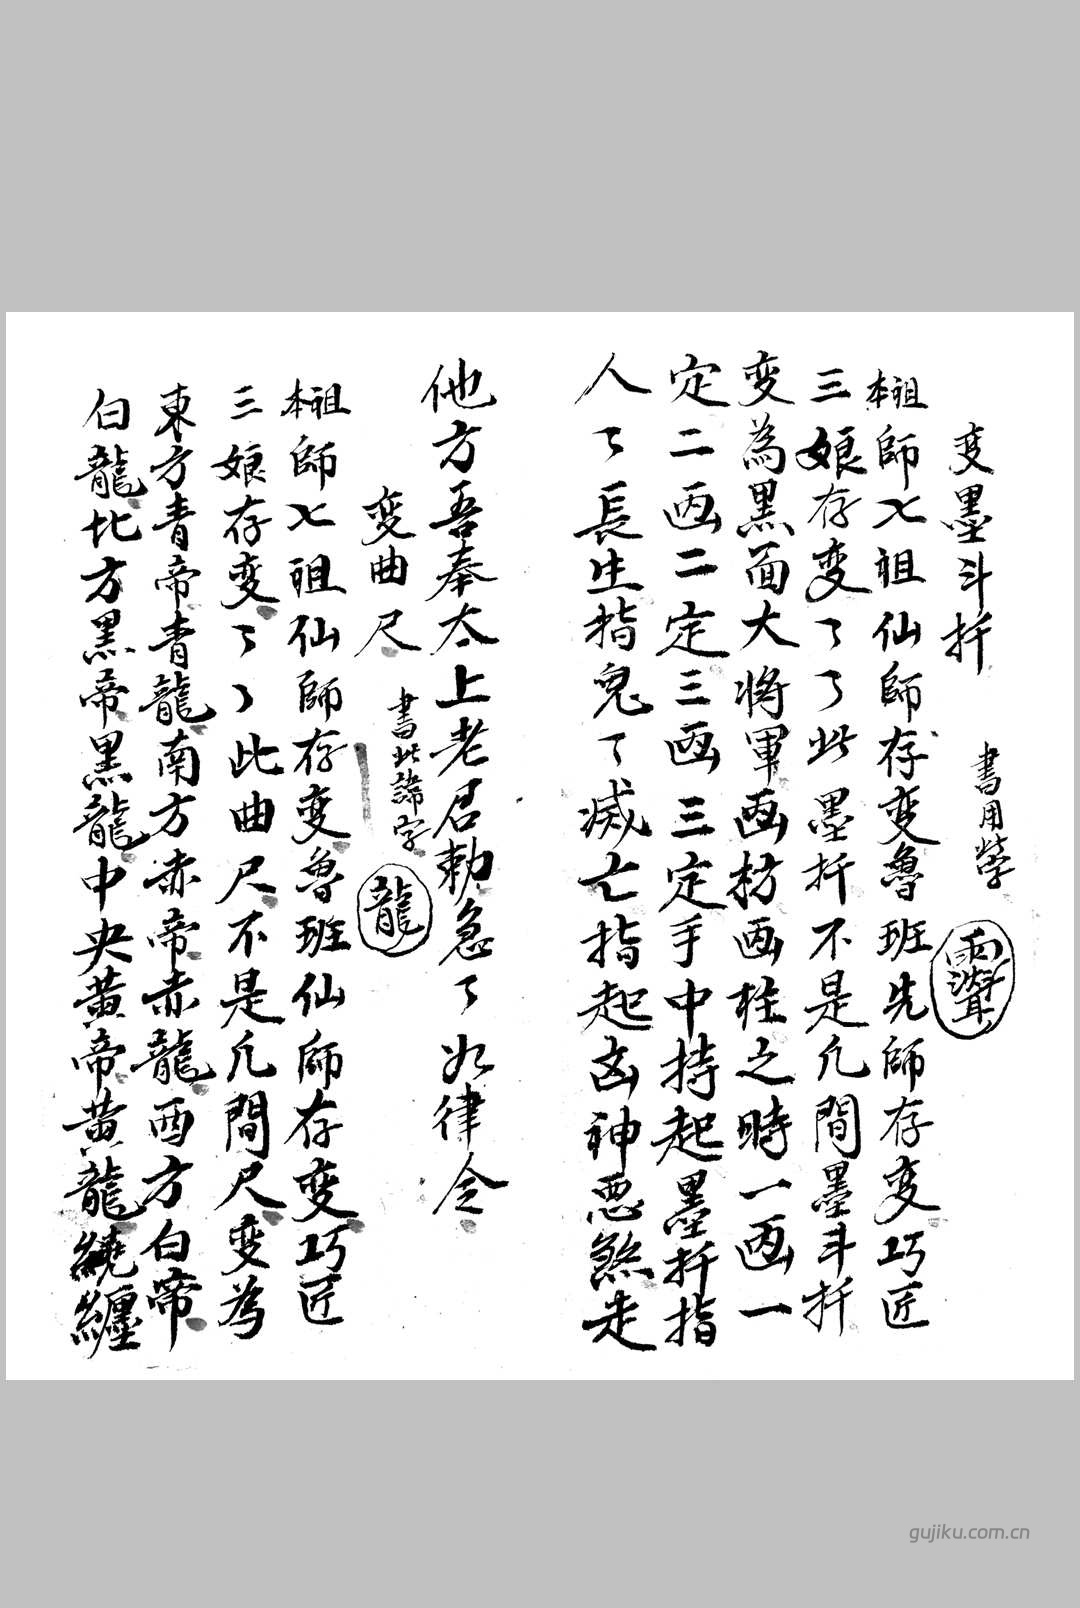 变墨斗扦 書用巒
本祖師父祖仙師存变魯班先師存变巧匠
三娘存变了了此墨扦不是凢間墨斗扦
变為黑面大將軍画枋画柱之時一画一
定二画二定三画三定手中持起墨扦指
人了長生指鬼了滅亡指起凶神惡煞走
他方吾奉太上老君勅急了如律令
变曲尺 書此諱字 龍
本祖師父祖仙師存变魯班仙師存变巧匠
三娘存变了了此曲尺不是凢間尺变為
東方青帝青龍南方赤帝赤龍西方白帝
白龍北方黑帝黑龍中央黄帝黄龍繞纏
gujiku.com.cn